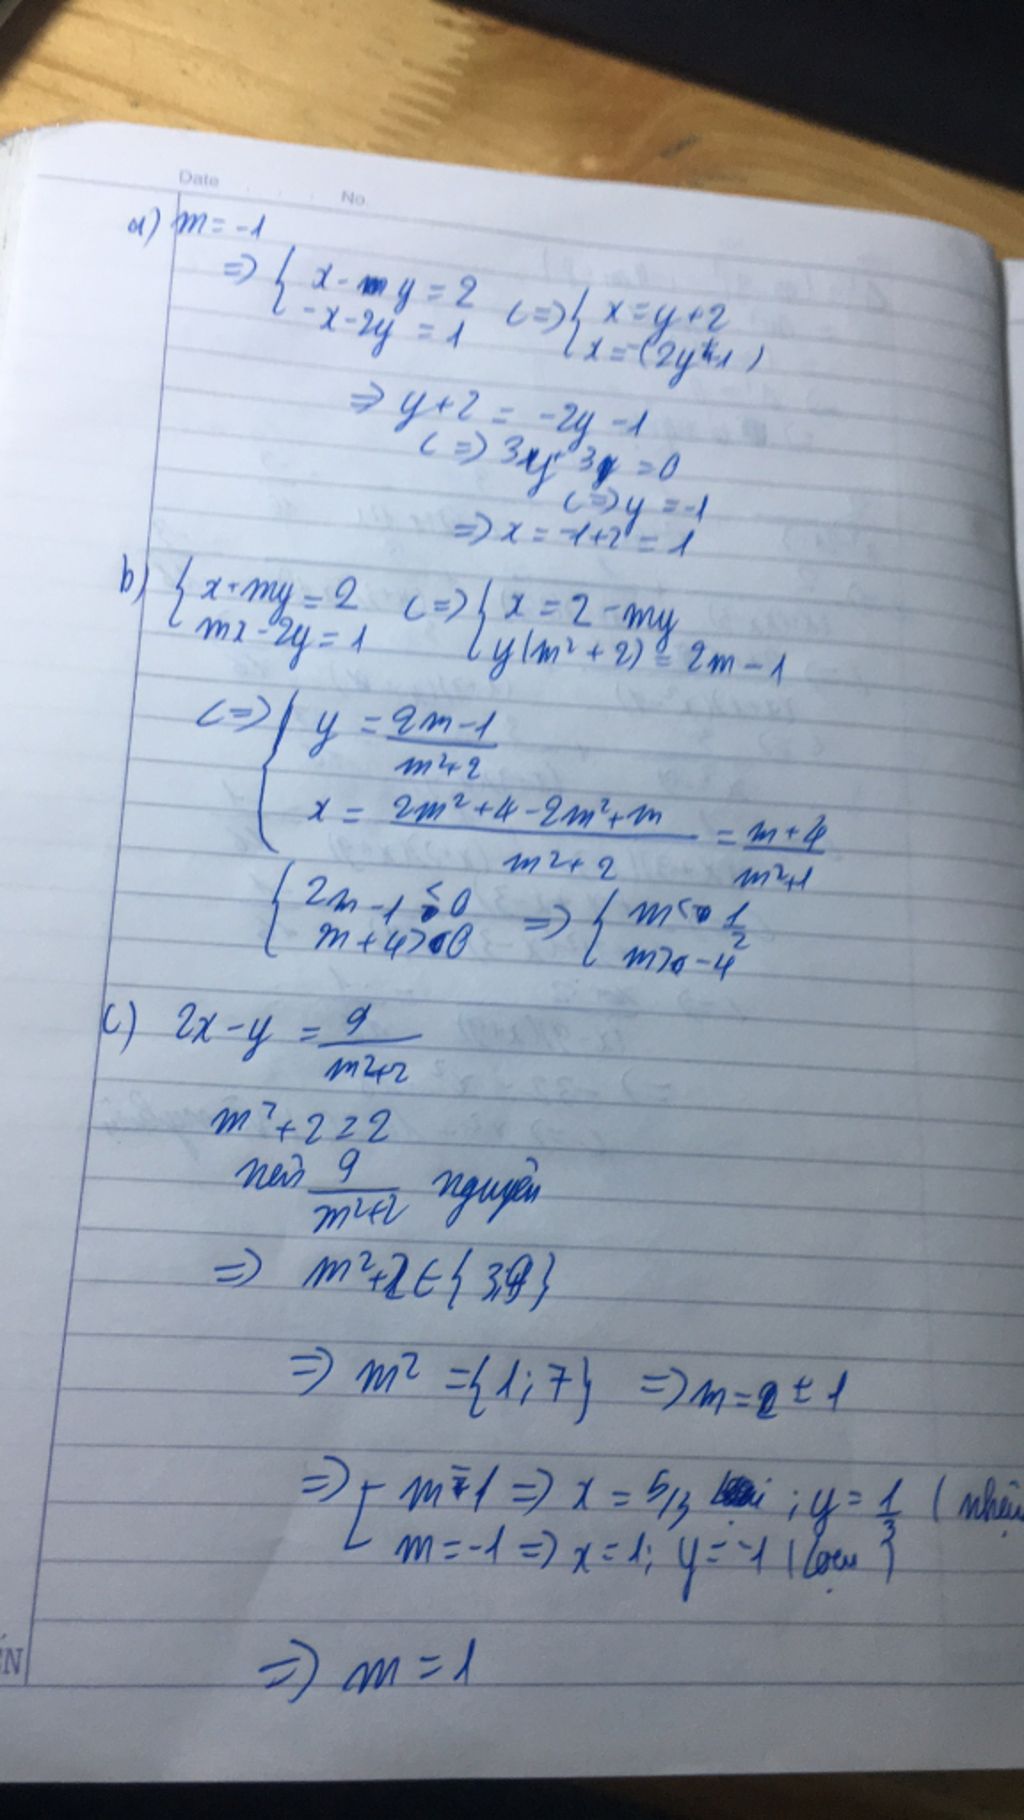 Date No
a) m = -1
=> { x - my = 2
-x - 2y = 1 <=> { x = y + 2
x = -(2y+1)
=> y + 2 = -2y - 1
<=> 3y + 3 = 0
<=> y = -1
=> x = -1+2 = 1
b) { x + my = 2
mx - 2y = 1 <=> { x = 2 - my
y(m² + 2) = 2m - 1
<=> { y = (2m - 1)/(m² + 2)
x = (2m² + 4 - 2m² + m)/(m² + 2) = (m + 4)/(m² + 1)
{ 2m - 1 < 0
m + 4 > 0 => { m < 1/2
m > -4
c) 2x - y = 9/(m² + 2)
m² + 2 ≥ 2
nên 9/(m² + 2) nguyên
=> m² + 2 ∈ {3; 9}
=> m² = {1; 7} => m = ± 1
=> [ m = 1 => x = 5/3 ; y = 1/3 (
m = -1 => x = 1; y = -1 (loại)
=> m = 1